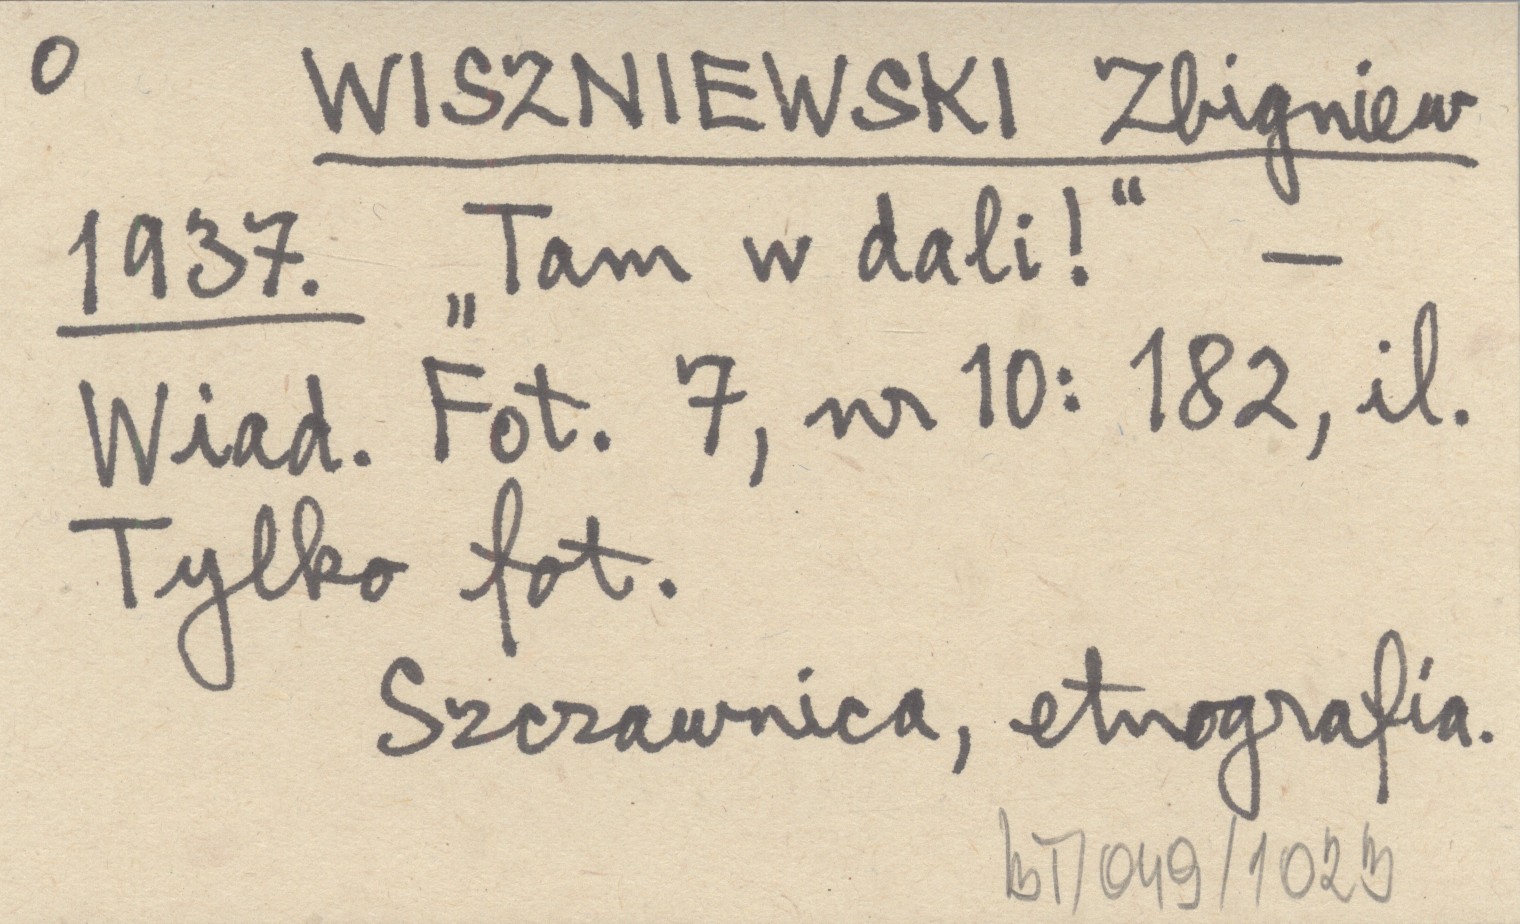 O WISZNIEWSKI Zbigniew
1937. „Tam w dali!“ —
Wiad. Fot. 7, nr 10: 182, il.
Tylko fot.
Szczawnica, etnografia.
BT/049/1023